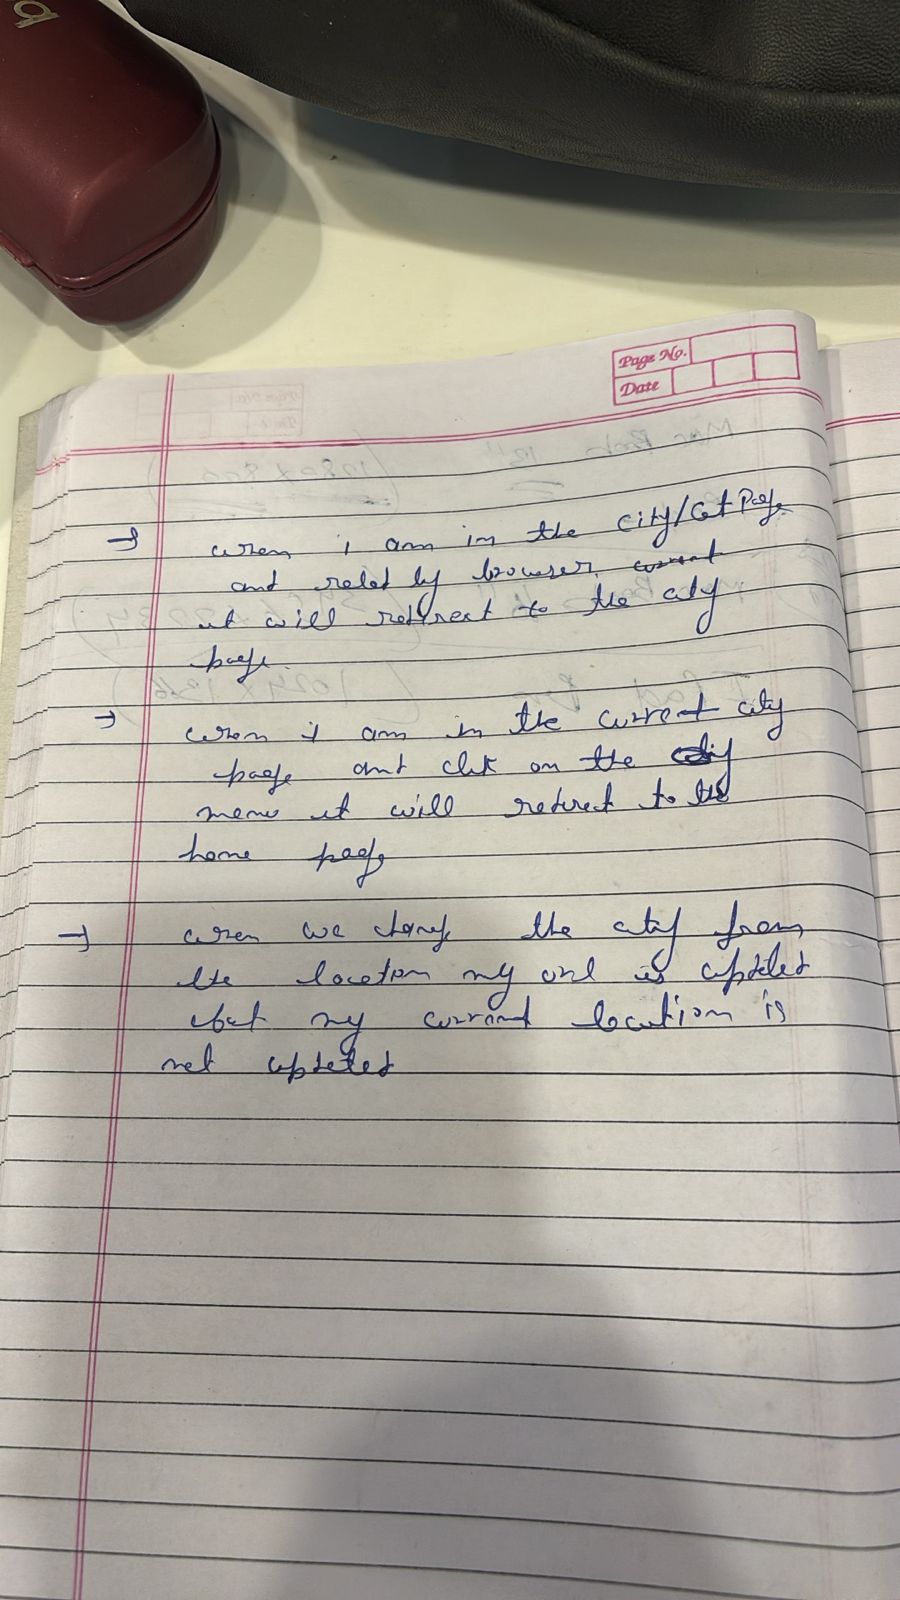 Page No.
Date
→ when i am in the city/Cat Page
and relod by browser
it will redirect to the city
page.
→ when i am in the current city
page and clik on the city
menu it will redirect to the
home page
→ when we change the city from
the location my url is updated
but my current location is
not updated